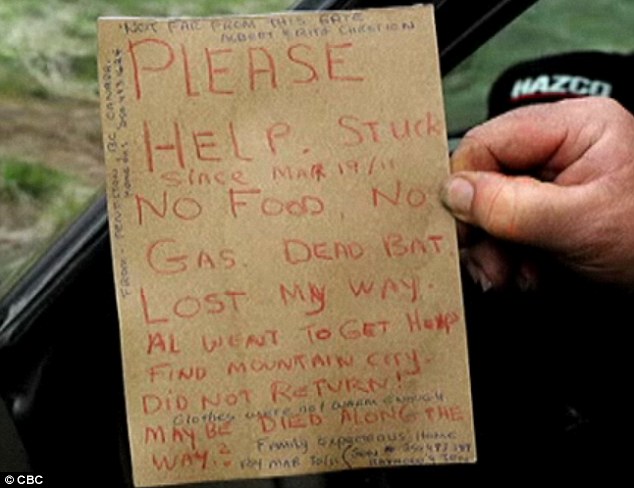 NOT FAR FROM THIS GATE
ALBERT & RITA CHRETIEN
PLEASE
HELP. STUCK
SINCE MAR 19/11
NO FOOD. NO
GAS. DEAD BAT.
LOST MY WAY.
AL WENT TO GET HELP
FIND MOUNTAIN CITY.
DID NOT RETURN!
Clothes were not warm enough
MAYBE DIED ALONG THE
WAY.?
Family expected us home
BY MAR 30/11
FROM PENTICTON BC CANADA
HAZCO
© CBC